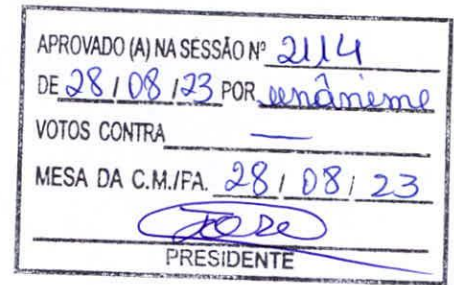 APROVADO (A) NA SESSÃO Nº 2114
DE 28 / 08 / 23 POR unânime
VOTOS CONTRA —
MESA DA C.M./FA. 28 / 08 / 23
PRESIDENTE